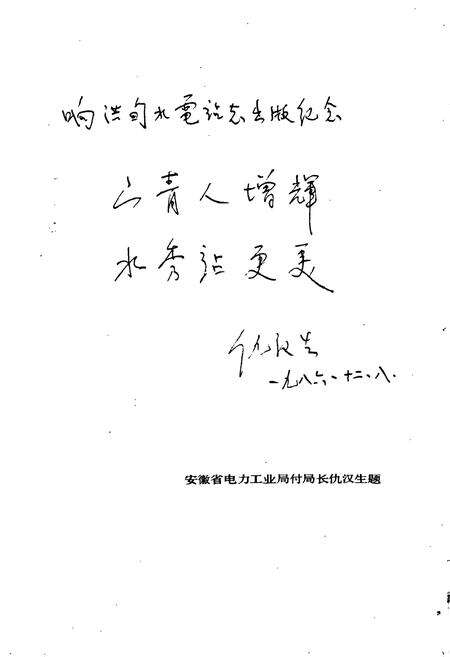 响洪甸水電站志出版纪念
山青人增輝
水秀站更美
仇汉生
一九八六、十二、八.
安徽省电力工业局付局长仇汉生题